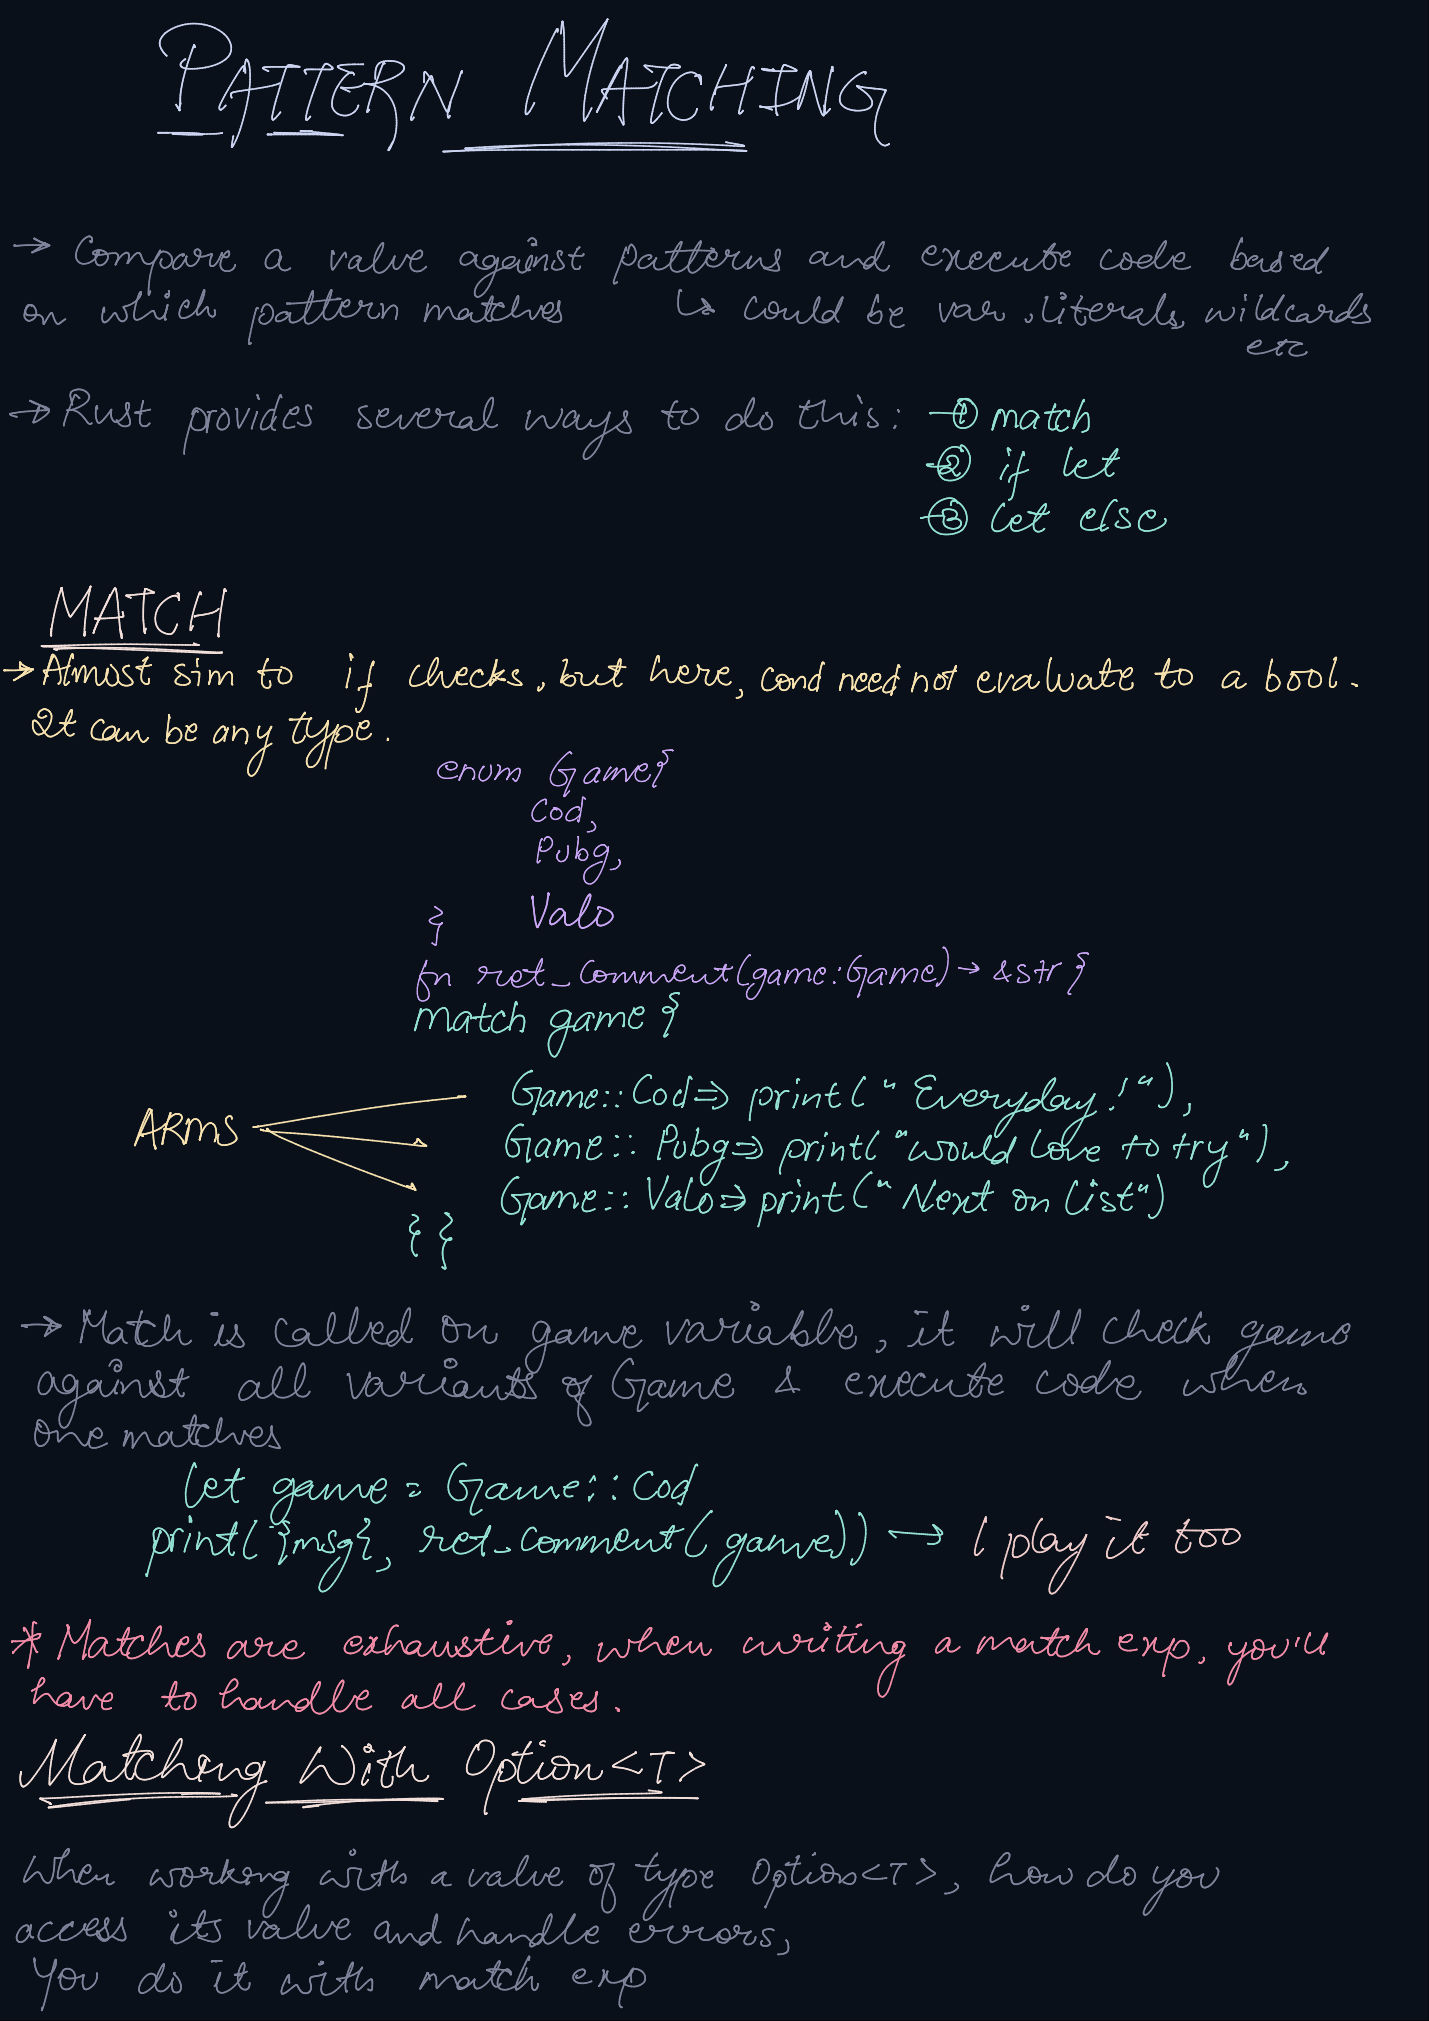 PATTERN MATCHING
→ Compare a value against patterns and execute code based
on which pattern matches ↳ could be var, literals, wildcards
etc
→ Rust provides several ways to do this: → ① match
→ ② if let
→ ③ let else
MATCH
→ Almost sim to if checks, but here, cond need not evaluate to a bool.
It can be any type.
enum Game{
Cod,
Pubg,
} Valo
fn ret_comment(game:Game) → &str {
match game {
Game::Cod => print("Everyday!"),
ARMS Game::Pubg => print("would love to try"),
Game::Valo => print("Next on list")
} }
→ Match is called on game variable, it will check game
against all variants of Game & execute code when
one matches
let game = Game::Cod
print({msg}, ret_comment(game)) → I play it too
* Matches are exhaustive, when writing a match exp, you'll
have to handle all cases.
Matching With Option<T>
When working with a value of type Option<T>, how do you
access its value and handle errors,
You do it with match exp